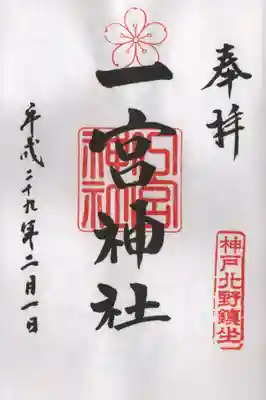 奉拝
一宮神社
一宮神社
神戸北野鎮坐
平成二十九年二月一日